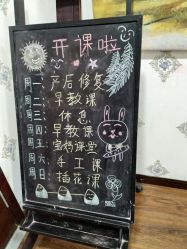 开课啦
周一 产后修复
周二 早教课
周三 休息
周四 早教课
周五 宝妈课堂
周六 手工课
周日 插花课